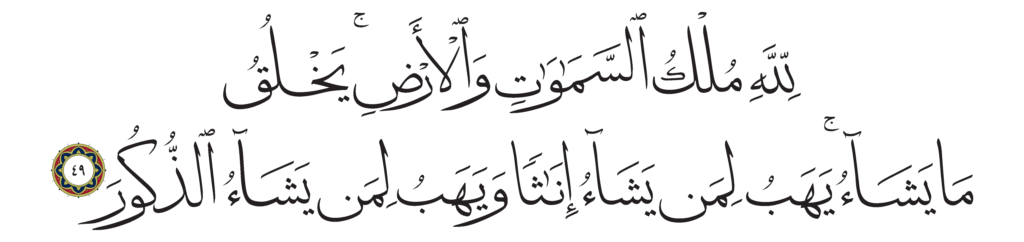 لِّلَّهِ مُلْكُ ٱلسَّمَٰوَٰتِ وَٱلْأَرْضِ ۚ يَخْلُقُ
مَا يَشَآءُ ۚ يَهَبُ لِمَن يَشَآءُ إِنَٰثًا وَيَهَبُ لِمَن يَشَآءُ ٱلذُّكُورَ ٤٩